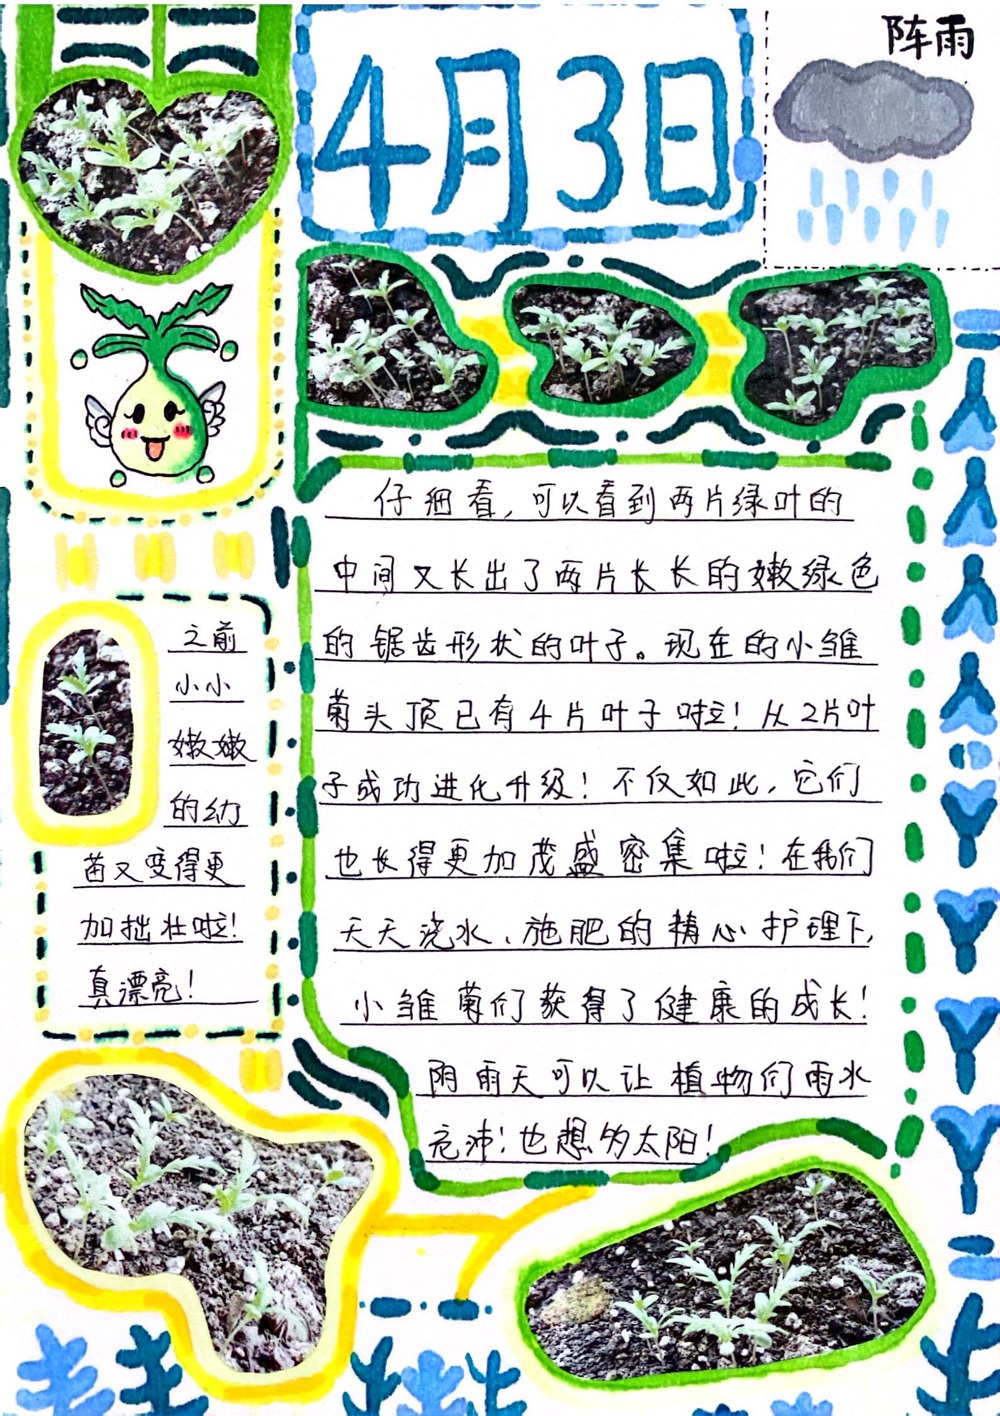 阵雨
4月3日
仔细看，可以看到两片绿叶的
中间又长出了两片长长的嫩绿色
的锯齿形状的叶子。现在的小雏
菊头顶已有4片叶子啦！从2片叶
子成功进化升级！不仅如此，它们
也长得更加茂盛密集啦！在我们
天天浇水、施肥的精心护理下，
小雏菊们获得了健康的成长！
阴雨天可以让植物们雨水
充沛！也想的太阳！
之前
小小
嫩嫩
的幼
苗又变得更
加拙壮啦！
真漂亮！